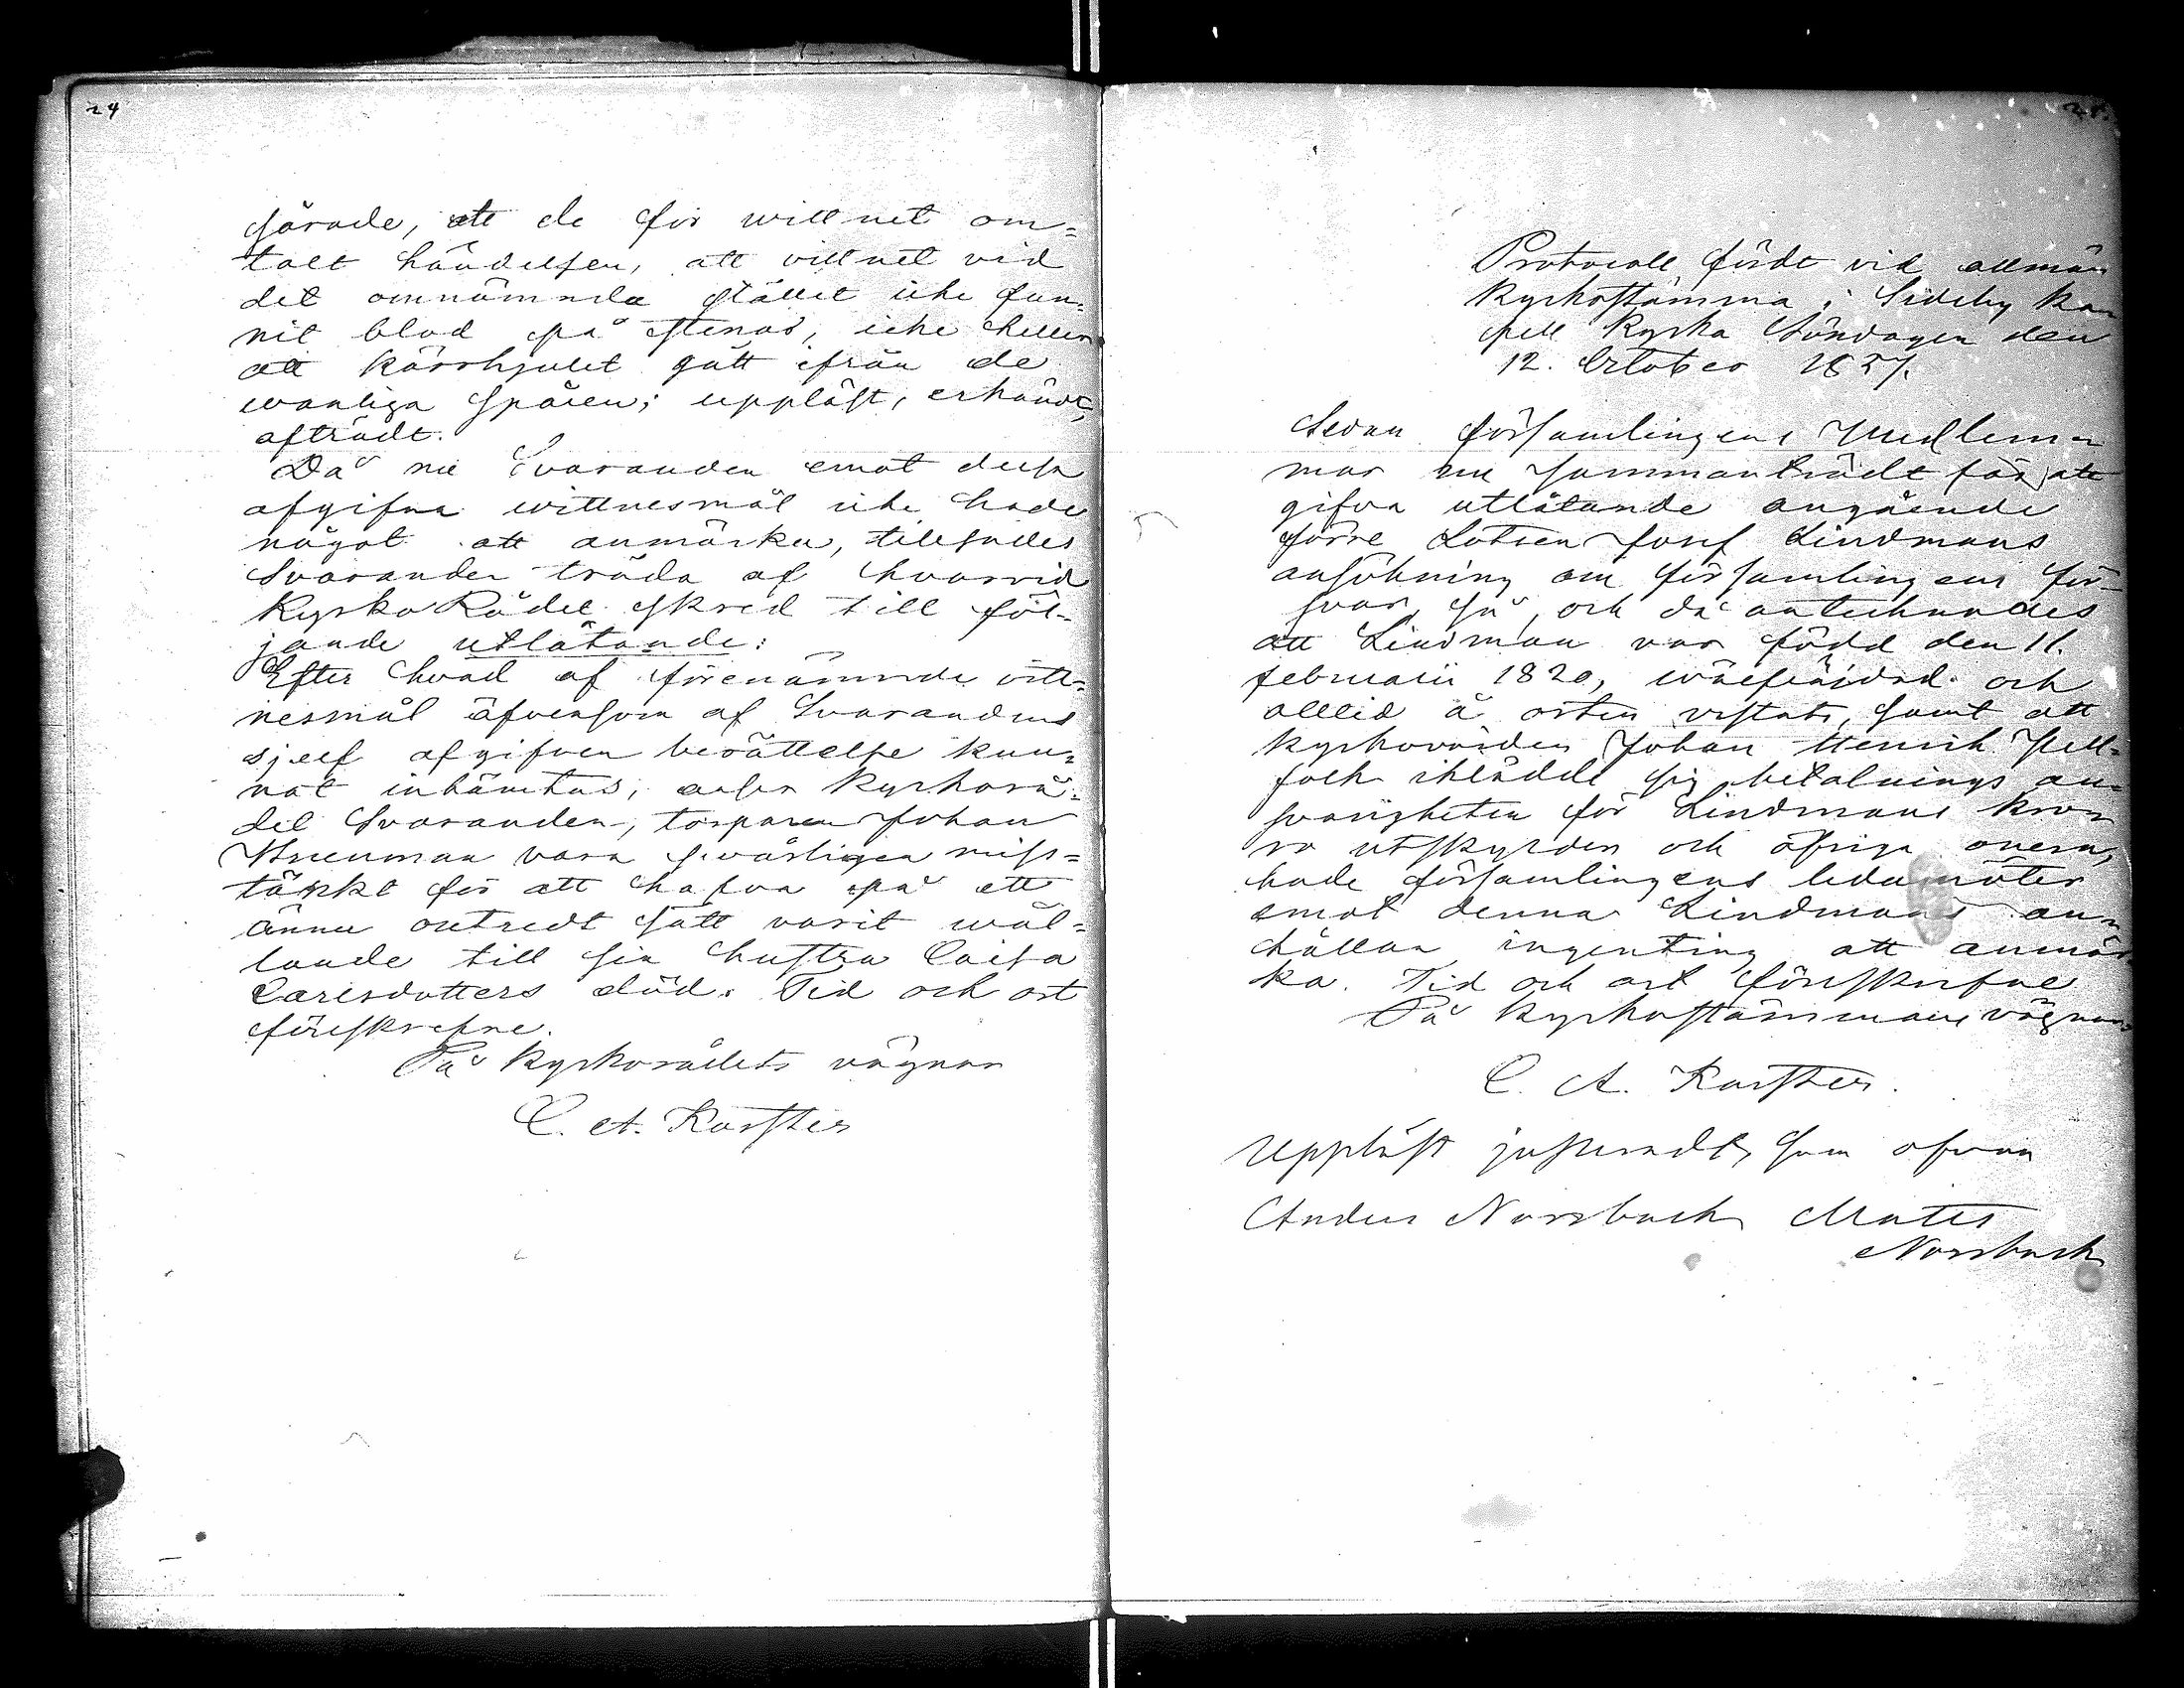 24
järade, att de för wittnet om=
talt händelsen, att vittnet vid
det omnämnda stället icke fun-
nit blod på stenar, icke heller
att kärrhjulet gått ifrån de
wanliga spåren; uppläst, erkändt,
afträdt.
Då nu Svaranden emot dessa
afgifna wittnesmål icke hade
något att anmärka, tillsades
Svaranden träda af hvarvid
KyrkoRådet skred till föl-
jande utlåtande:
Efter hvad af förenämnde vitt-
nesmål äfvensom af Svarandens
sjelf afgifven berättelse kun-
nat inhämtas, anser Kyrkorå-
det Svaranden, torparen Johan
vara svårligen miss=
tänkt för att hafva på ett
ännu outredt sätt varit wål=
lande till sin hustru Caisa
Carlsdotters död. Tid och ort
föreskrefne.
På Kyrkorådets vägnar
C. A. Karsten
25.
Protocoll fördt vid allmän
Kyrkostämma i Sideby Ka-
pell Kyrka Söndagen den
12. October 1857.
Sedan församlingens Medlem-
mar nu sammanträdt för att
gifva utlåtande angående
förre Lotsen Josef Lindmans
ansökning om församlingens för-
svar, så, och då antecknades
att Lindman var född den 11.
februarii 1820, wälfräjdad och
alltid å orten vistats, samt att
kyrkovärden Johan Henrik
iklädde sig betalnings an-
svarigheten för Lindmans Kro-
no utskylder och öfriga onera,
hade församlingens ledamöter
emot denna Lindmans an-
hållan ingenting att anmär
ka. Tid och ort förskrifne
På Kyrkostämmans vägnar
C. A. Karsten.
Uppläst justeradt, som ofvan
Anders Norrback Mats
Norrback